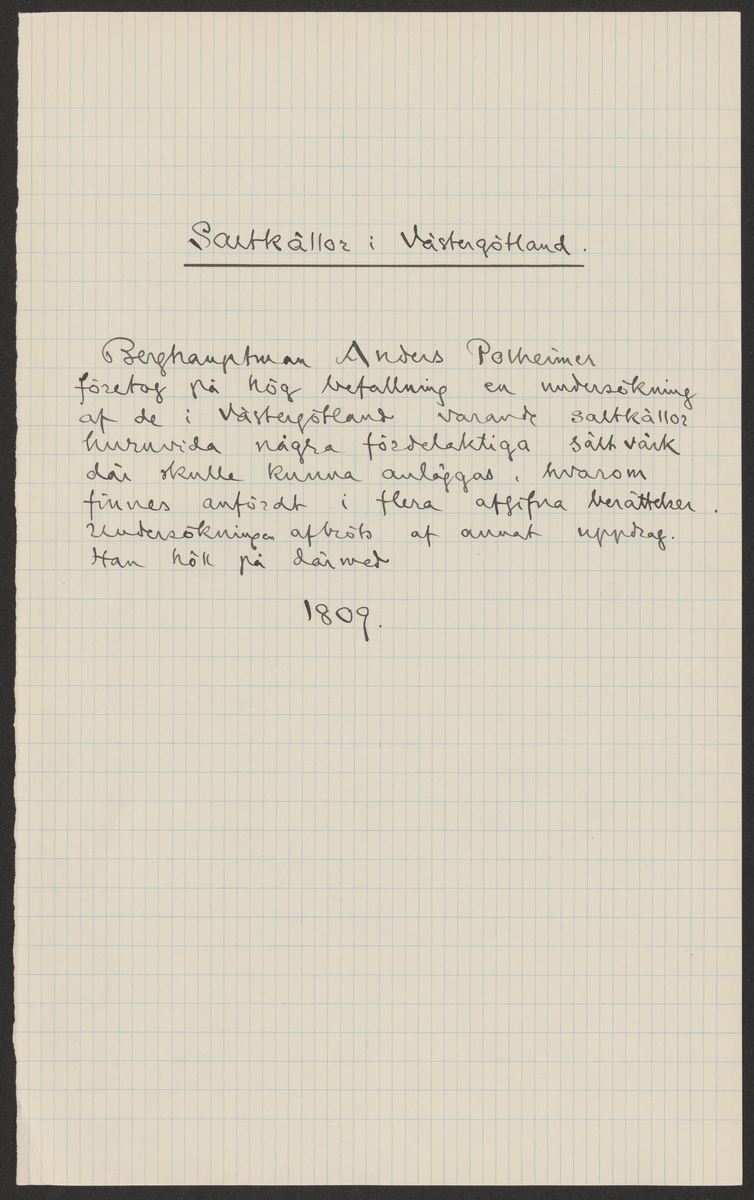 Saltkällor i Västergötland.
Berghauptman Anders Polheimer
företog på hög befallning en undersökning
af de i Västergötland varande saltkällor
huruvida några fördelaktiga sältvärk
där skulle kunna anläggas, hvarom
finnes anfördt i flera afgifna berättelser.
Undersökningen afbröts af annat uppdrag.
Han höll på därmed
1809.